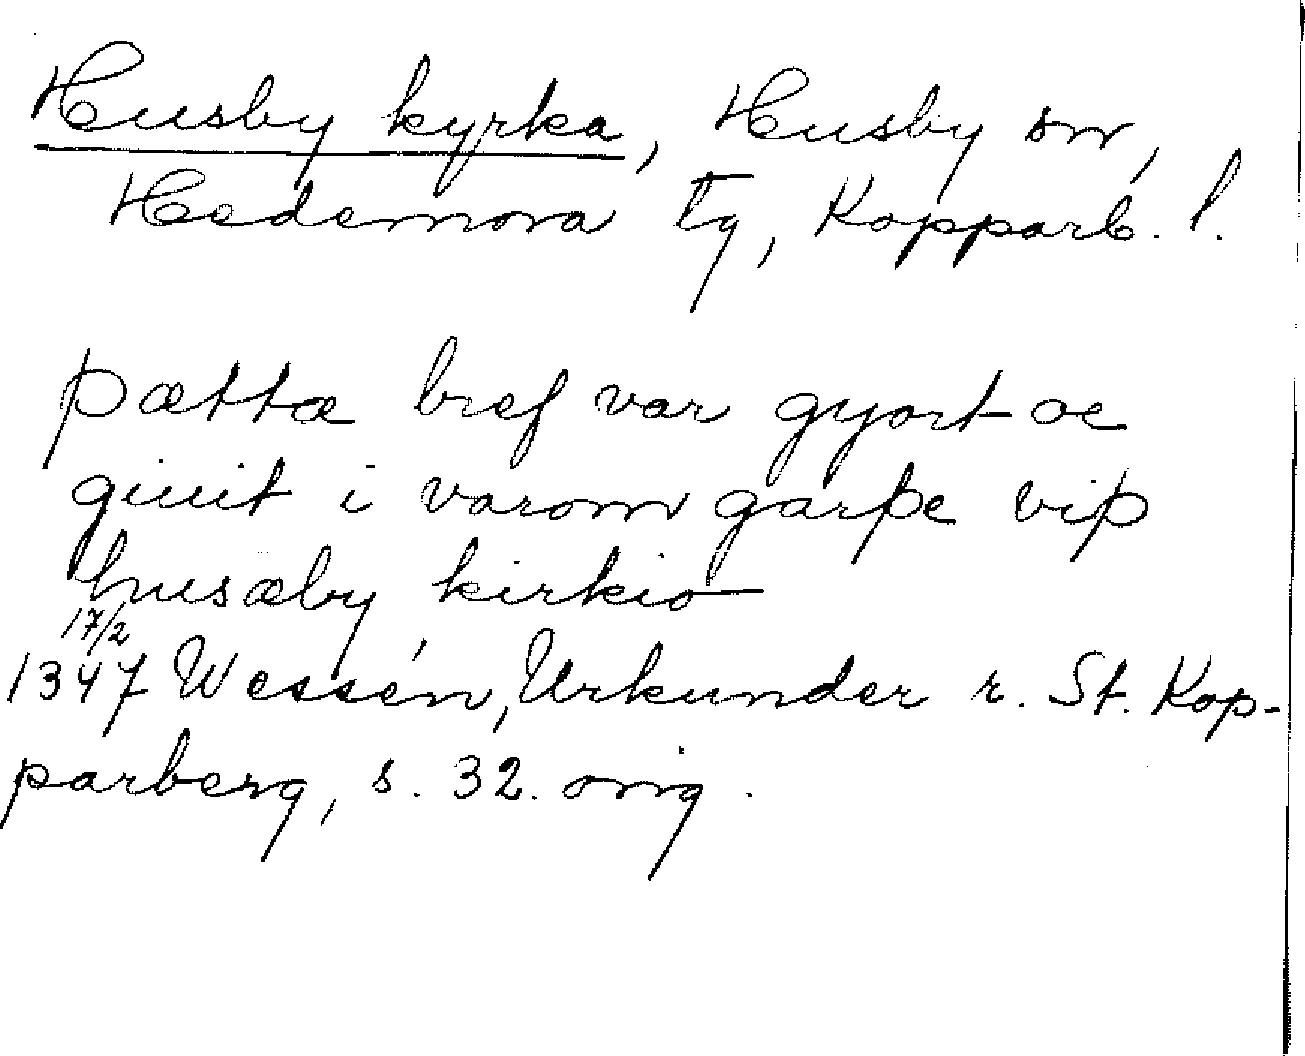 Husby kyrka, Husby sn,
Hedemora tg, Kopparb. l.
þættæ bref var gyort oc
giuit i varom garþe viþ
husæby kirkio
17/2
1347 Wessén, Urkunder r. St. Kop-
parberg, s. 32. orig.